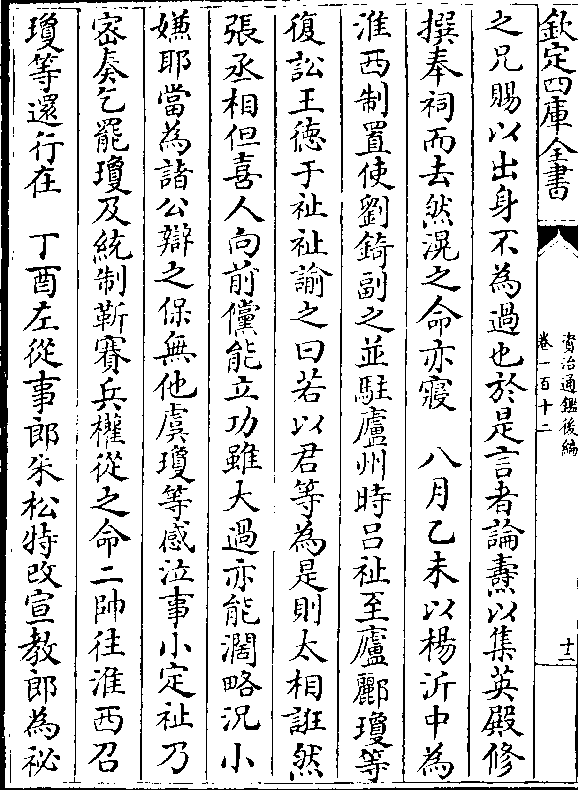 欽定四庫全書
資治通鑑後編
卷一百十二
十二
之兄賜以出身不為過也於是言者論燾以集英殿修
撰奉祠而去然滉之命亦寢　八月乙未以楊沂中為
淮西制置使劉錡副之並駐廬州時呂祉至廬酈瓊等
復訟王德于祉祉諭之曰若以君等為是則太相誑然
張丞相但喜人向前儻能立功雖大過亦能濶略況小
嫌耶當為諸公辯之保無他虞瓊等感泣事小定祉乃
密奏乞罷瓊及統制靳賽兵權從之命二帥往淮西召
瓊等還行在　丁酉左從事郎朱松特改宣教郎為祕